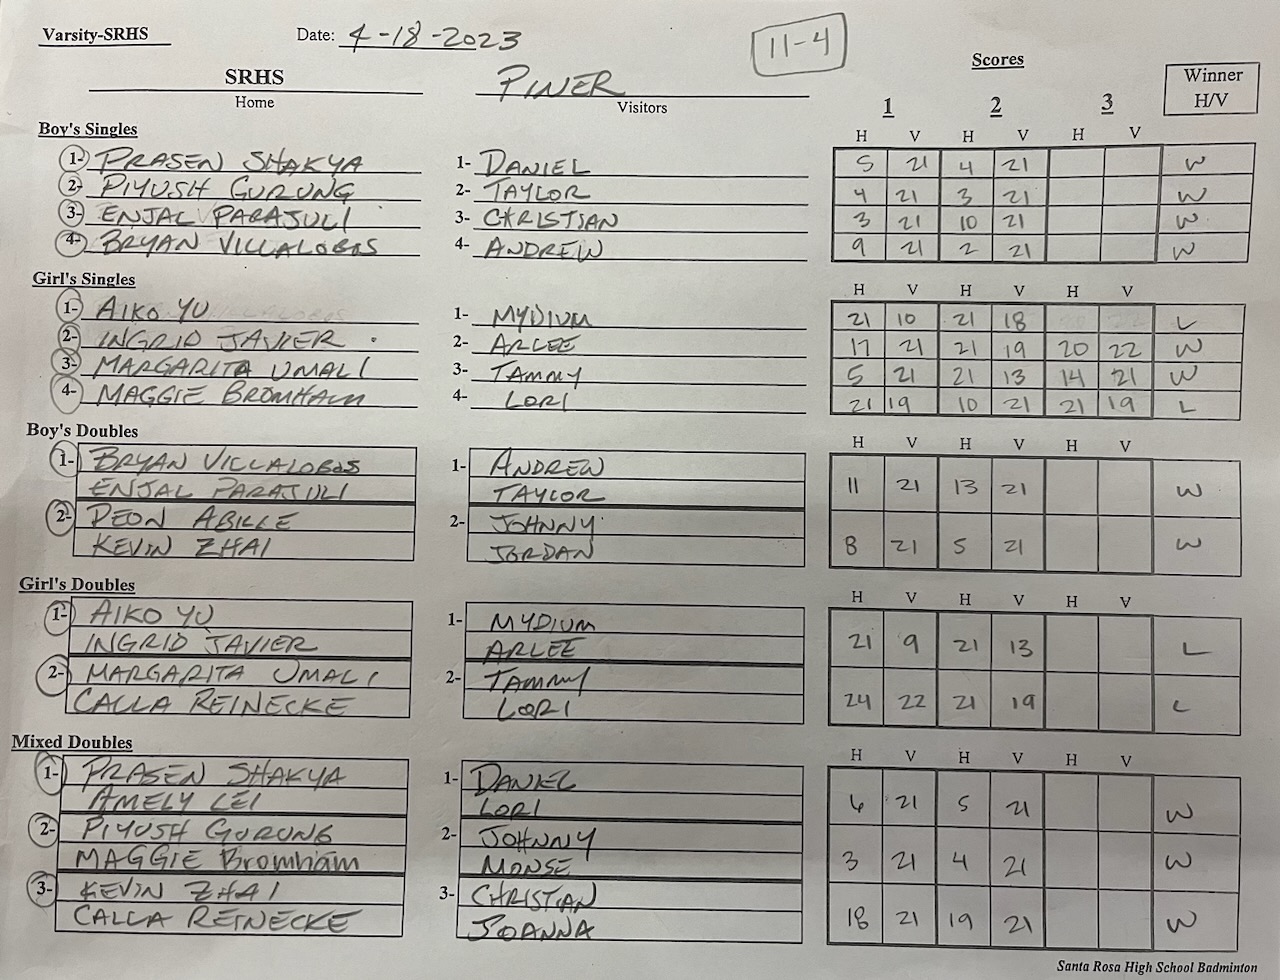 Varsity-SRHS Date: 4-18-2023 11-4
Scores
SRHS PINER Winner
Home Visitors H/V
1 2 3
Boy's Singles H V H V H V
1- PRASEN SHAKYA 1- DANIEL 5 21 4 21 W
2- PIYUSH GURUNG 2- TAYLOR 4 21 3 21 W
3- ENJAL PARAJULI 3- CHRISTIAN 3 21 10 21 W
4- BRYAN VILLALOBOS 4- ANDREW 9 21 2 21 W
Girl's Singles H V H V H V
1- AIKO YU 1- MYDIUM 21 10 21 18 L
2- INGRID JAVIER 2- ARLEE 17 21 21 19 20 22 W
3- MARGARITA UMALI 3- TAMMY 5 21 21 13 14 21 W
4- MAGGIE BROMHAM 4- LORI 21 19 10 21 21 19 L
Boy's Doubles H V H V H V
1- BRYAN VILLALOBOS 1- ANDREW
ENJAL PARAJULI TAYLOR 11 21 13 21 W
2- DEON ABILLE 2- JOHNNY
KEVIN ZHAI JORDAN 8 21 5 21 W
Girl's Doubles H V H V H V
1- AIKO YU 1- MYDIUM
INGRID JAVIER ARLEE 21 9 21 13 L
2- MARGARITA UMALI 2- TAMMY
CALLA REINECKE LORI 24 22 21 19 L
Mixed Doubles H V H V H V
1- PRASEN SHAKYA 1- DANIEL
AMELY LEI LORI 6 21 5 21 W
2- PIYUSH GURUNG 2- JOHNNY
MAGGIE Bromham MONSE 3 21 4 21 W
3- KEVIN ZHAI 3- CHRISTIAN
CALLA REINECKE JOANNA 18 21 19 21 W
Santa Rosa High School Badminton